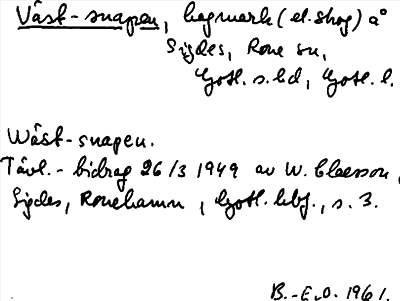 Väst-snapen, hagmark (el. skog) å
Sigdes, Rone sn,
Gotl. s. hd, Gotl. l.
Wäst-snapen.
Tävl.-bidrag 26/3 1949 av W. Claesson,
Sigdes, Ronehamn, Gotl. hbf., s. 3.
B.-E. O. 1961.